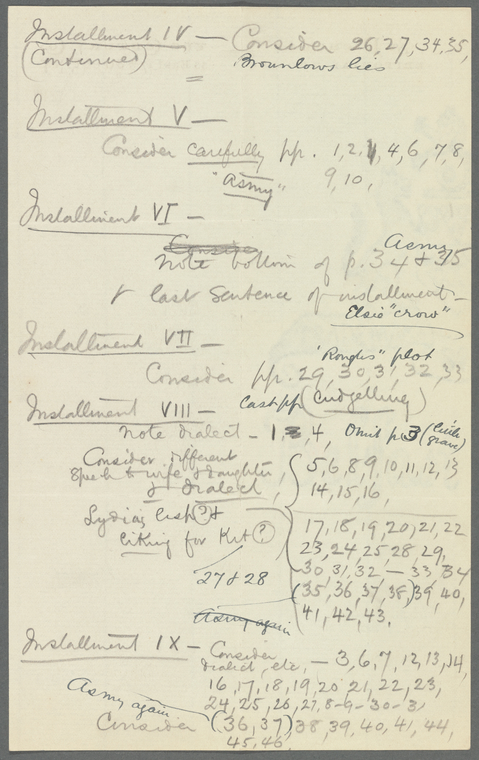 Installment IV — Consider 26, 27, 34, 35,
(Continued) Brownlows lies
Installment V —
Consider carefully pp. 1, 2, 4, 6, 7, 8,
"Asmy" 9, 10,
Installment VI —
Asmy
note bottom of p. 34 & 35
& last sentence of installment —
Elsie "crow"
Installment VII —
"Roughs" plot
Consider pp. 29, 30, 31, 32, 33
Last pp (Cudgelling)
Installment VIII —
note dialect — 1, 3, 4, Omit p 3 (Little
Consider different
speech to wife & daughter, 5, 6, 8, 9, 10, 11, 12, 13
& dialect, 14, 15, 16,
Lydia's lisp (?) & 17, 18, 19, 20, 21, 22
liking for Kit (?) 23, 24, 25, 28, 29,
30, 31, 32 — 33, 34
27 & 28 (35, 36, 37, 38,) 39, 40,
Asmy again 41, 42, 43,
Installment IX — Consider
dialect, etc, — 3, 6, 7, 12, 13, 14,
16, 17, 18, 19, 20, 21, 22, 23,
Asmy again 24, 25, 26, 27, 8 - 9 - 30 - 31
Consider (36, 37) 38, 39, 40, 41, 44,
45, 46,